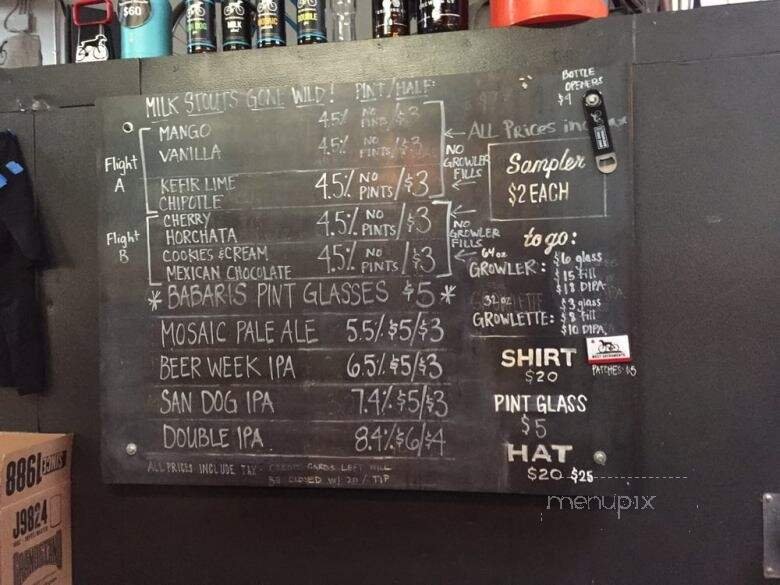 $60
MILK STOUTS GONE WILD! PINT/HALF:
Flight A
MANGO 4.5% NO PINTS/$3
VANILLA 4.5% NO PINTS/$3
KEFIR LIME
CHIPOTLE 4.5% NO PINTS/$3
Flight B
CHERRY
HORCHATA 4.5% NO PINTS/$3
COOKIES & CREAM
MEXICAN CHOCOLATE 4.5% NO PINTS/$3
NO GROWLER FILLS
NO GROWLER FILLS
* BABARIS PINT GLASSES $5 *
MOSAIC PALE ALE 5.5% $5/$3
BEER WEEK IPA 6.5% $5/$3
SAN DOG IPA 7.4% $5/$3
DOUBLE IPA 8.4% $6/$4
ALL PRICES INCLUDE TAX - CREDIT CARDS LEFT WILL
BE CLOSED W/ 20% TIP
BOTTLE
OPENERS
$4
ALL Prices
Sampler
$2 EACH
to go:
64 oz
GROWLER: $6 glass
$15 fill
$18 DIPA
32 oz
GROWLETTE: $3 glass
$8 fill
$10 DIPA
SHIRT
$20
PATCHES: $5
PINT GLASS
$5
HAT
$20-$25
menupix
SINCE 1988
J9824